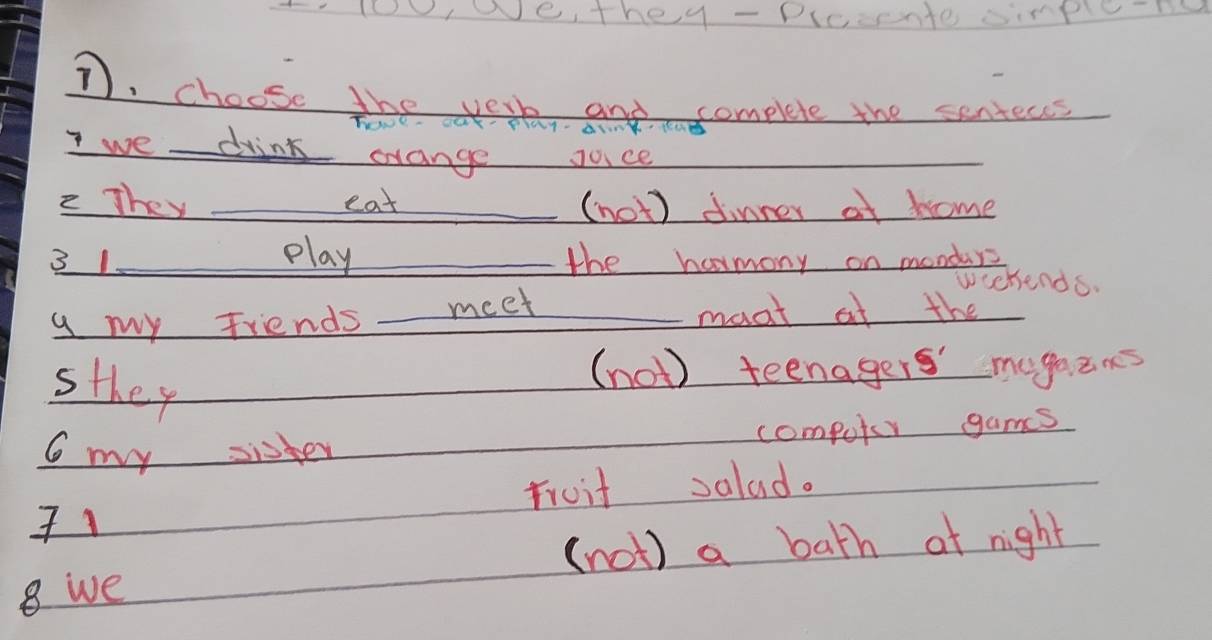 You, We, they - Presente simple -
1). choose the verb and complete the senteces
have - eat - play - drink - read
1 we drink orange juice
2 They eat (not) dinner at home
3 I play the harmony on mondays
weekends.
4 my Friends meet maat at the
5 they (not) teenagers' magazines
6 my sister computer games
7 I Fruit salad.
8 we (not) a bath at night